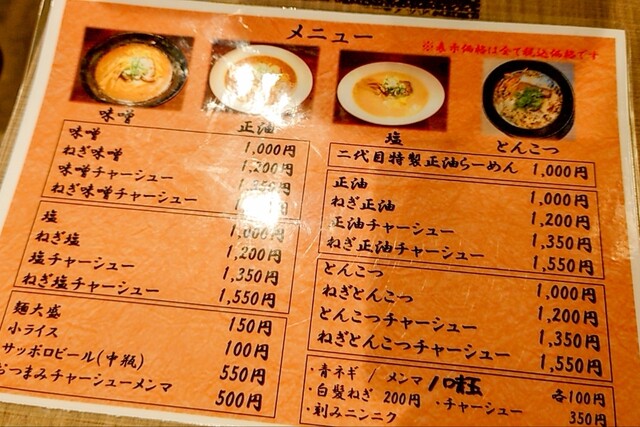 メニュー
※表示価格は全て税込価格です
味噌
正油
塩
とんこつ
味噌 1,000円
ねぎ味噌 1,200円
味噌チャーシュー
ねぎ味噌チャーシュー
塩 1,000円
ねぎ塩 1,200円
塩チャーシュー 1,350円
ねぎ塩チャーシュー 1,550円
麺大盛 150円
小ライス 100円
サッポロビール(中瓶) 550円
おつまみチャーシューメンマ 500円
二代目特製正油らーめん 1,000円
正油 1,000円
ねぎ正油 1,200円
正油チャーシュー 1,350円
ねぎ正油チャーシュー 1,550円
とんこつ 1,000円
ねぎとんこつ 1,200円
とんこつチャーシュー 1,350円
ねぎとんこつチャーシュー 1,550円
・青ネギ / メンマ / 味玉 各100円
・白髪ねぎ 200円 ・チャーシュー 350円
・刻みニンニク